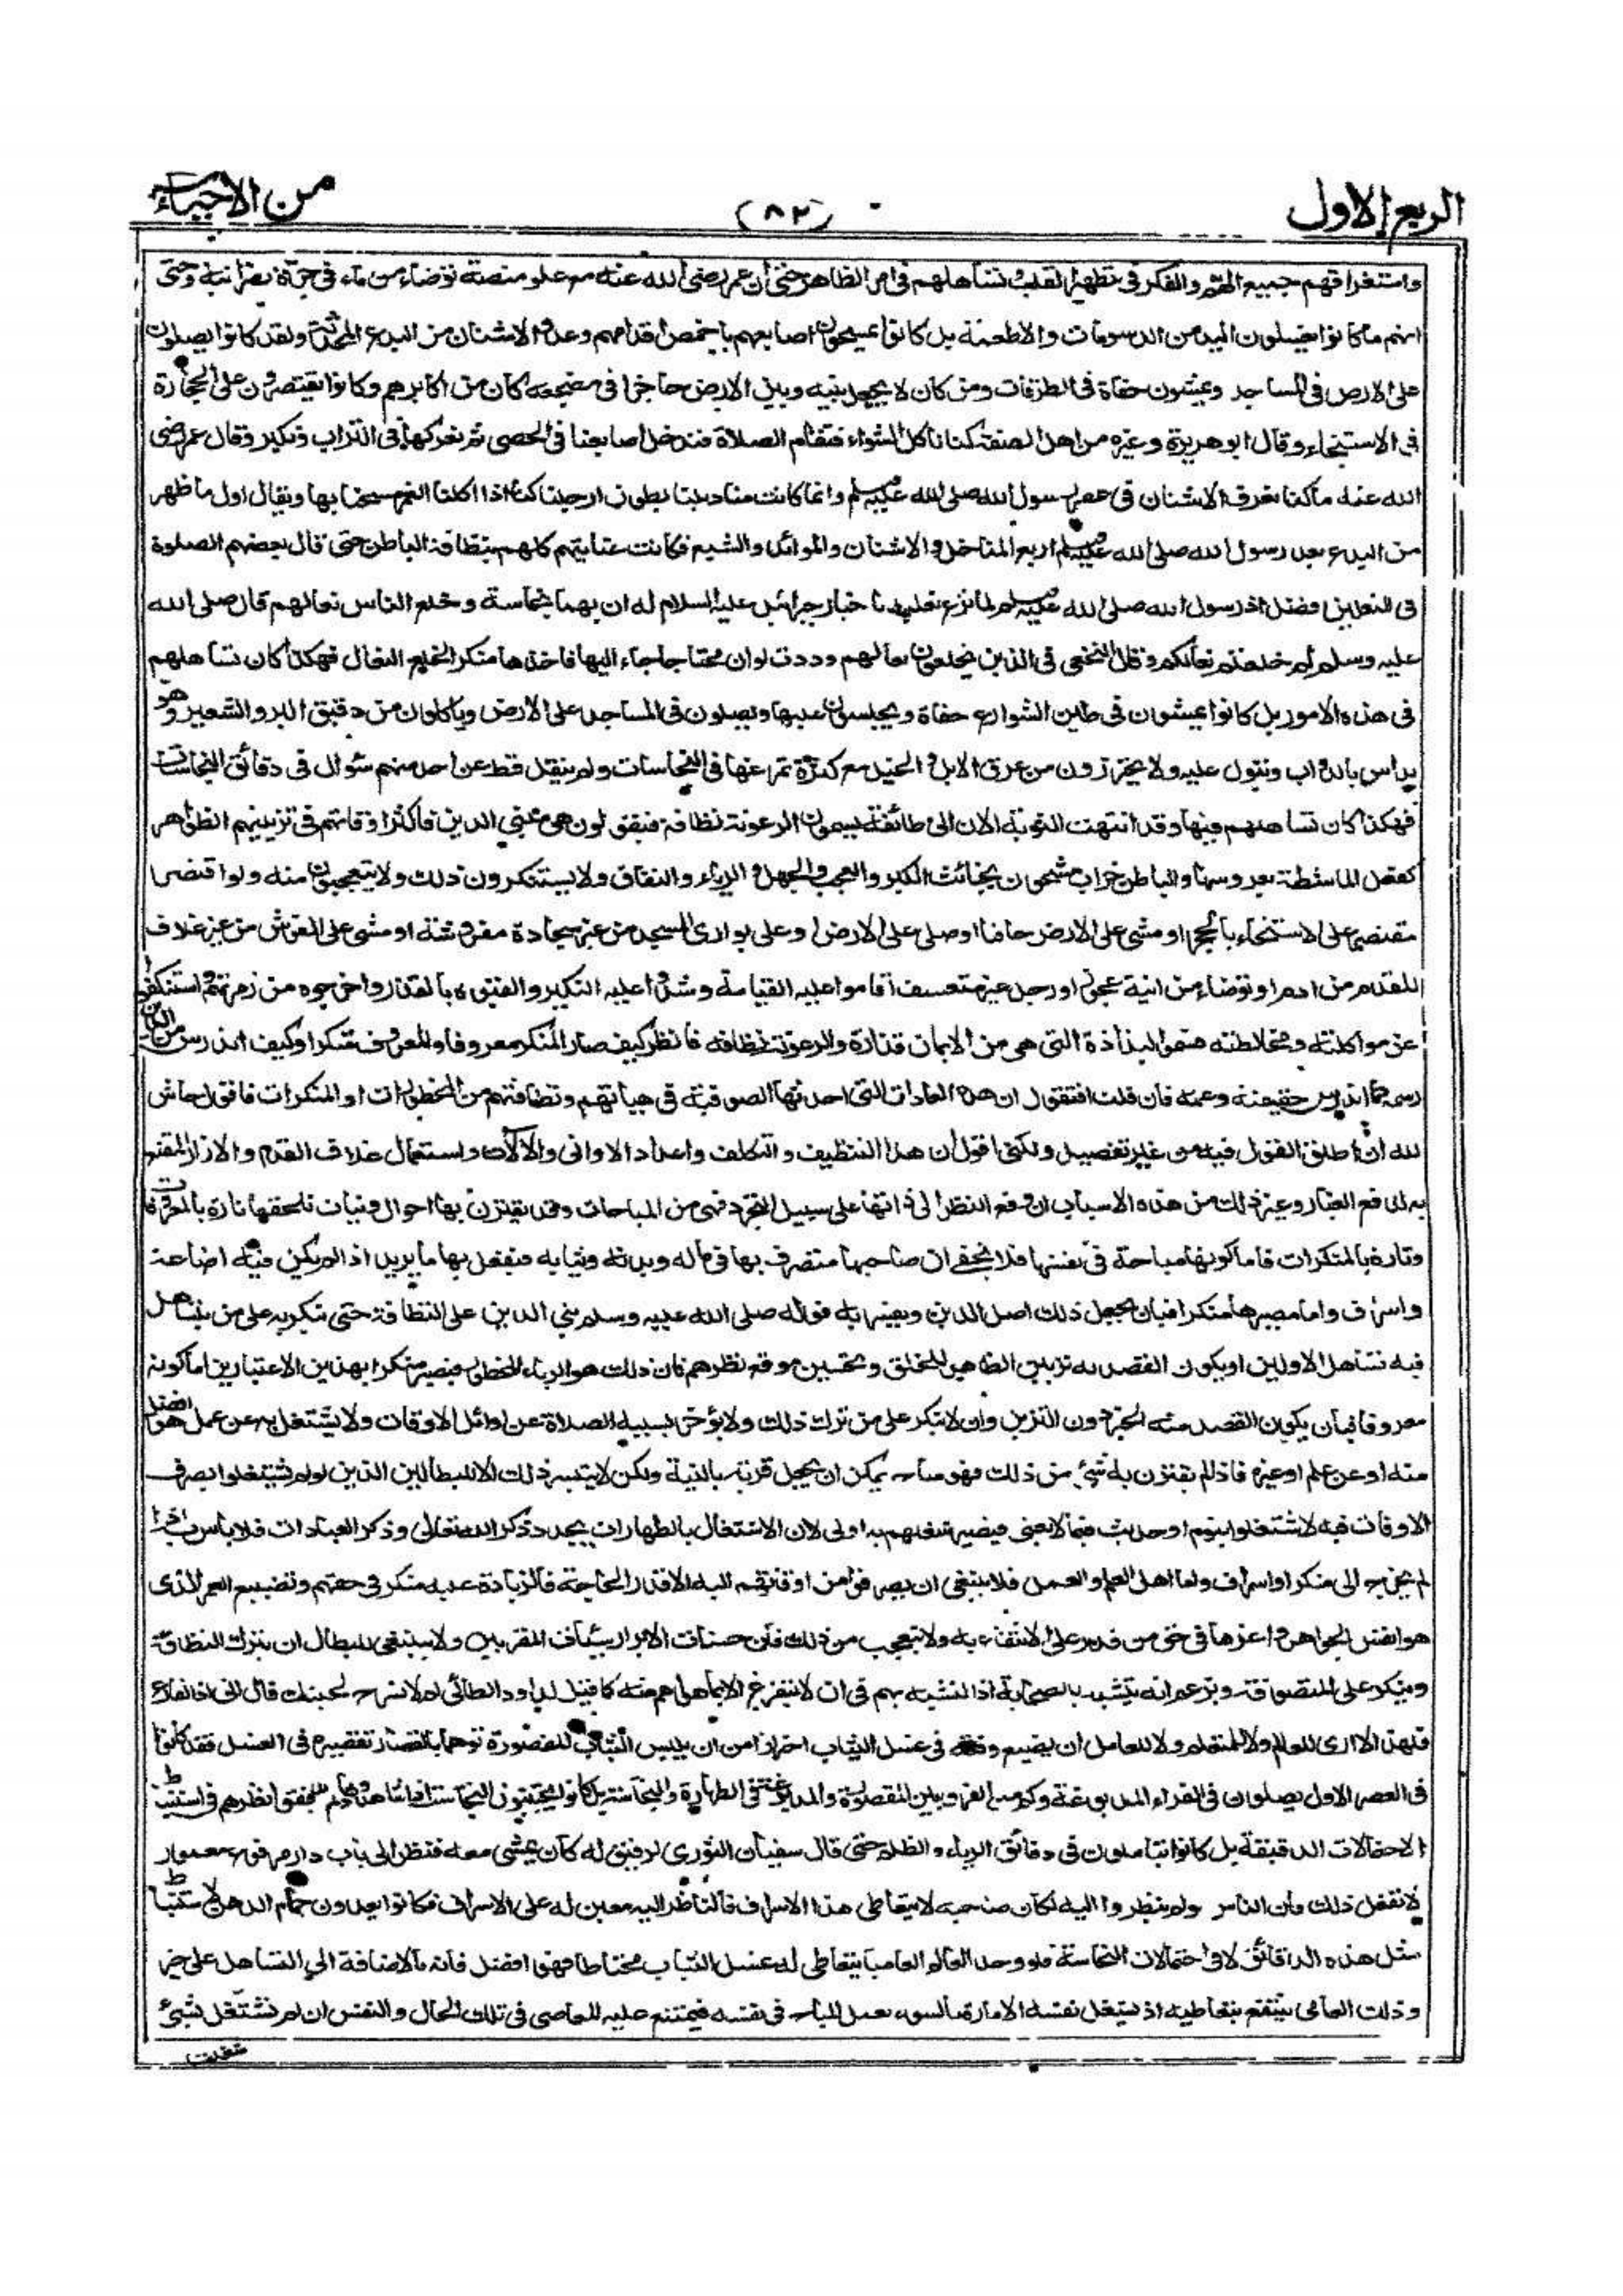 الربع الاول
(٨٢)
من الاحياء
واستغراقهم جميع الهم والفكر فى تطهير القلب تساهلهم فى امر الظاهر حتى ان عمر رضى الله عنه مع علو منصبه توضاء من ماء فى جرة نصرانية وحتى
انهم ما كانوا يغسلون اليد من الدسومات والاطعمة بل كانوا يمسحون اصابعهم باخمص اقدامهم وعدوا الاشنان من البدع المحدثة ولقد كانوا يصلون
على الارض فى المساجد ويمشون حفاة فى الطرقات ومن كان لا يجعل بينه وبين الارض حاجزا فى مضجعه كان من اكابرهم وكانوا يقتصرون على الحجارة
فى الاستنجاء وقال ابو هريرة وغيره من اهل الصفة كنا ناكل الشواء فتقام الصلاة فندخل اصابعنا فى الحصى ثم نفركها فى التراب ونكبر وقال عمر رضى
الله عنه ما كنا نعرف الاشنان فى عصر رسول الله صلى الله عليه وسلم وانما كانت مناديلنا بطون ارجلنا كنا اذا اكلنا الغمر مسحنا بها ويقال اول ما ظهر
من البدع بعد رسول الله صلى الله عليه وسلم اربع المناخل والاشنان والموائد والشبع فكانت عنايتهم كلهم بنظافة الباطن حتى قال بعضهم الصلوة
فى النعلين افضل اذ رسول الله صلى الله عليه وسلم لما نزع نعليه باخبار جبرائيل عليه السلام له ان بهما نجاسة وخلع الناس نعالهم قال صلى الله
عليه وسلم لم خلعتم نعالكم وقال النخعى فى الذين يخلعون نعالهم وددت لو ان محتاجا جاء اليها فاخذها منكرا لخلع النعال فهكذا كان تساهلهم
فى هذه الامور بل كانوا يمشون فى طين الشوارع حفاة ويجلسون عليها ويصلون فى المساجد على الارض وياكلون من دقيق البر والشعير وهو
يداس بالدواب وتبول عليه ولا يحترزون من عرق الابل والخيل مع كثرة تمرغها فى النجاسات ولم ينقل قط عن احد منهم سؤال فى دقائق النجاسات
فهكذا كان تساهلهم فيها وقد انتهت النوبة الان الى طائفة يسمون الرعونة نظافة فيقولون هى مبنى الدين فاكثر اوقاتهم فى تزيينهم الظواهر
كفعل الماشطة بعروسها والباطن خراب مشحون بخبائث الكبر والعجب والجهل والرياء والنفاق ولا يستنكرون ذلك ولا يتعجبون منه ولو اقتصر
مقتصر على الاستنجاء بالحجر او مشى على الارض حافيا او صلى على الارض او على بوارى المسجد من غير سجادة مفروشة او مشى على الفرش من غير غلاف
للقدم من ادم او توضاء من انية عجوز او رجل غير متقشف اقاموا عليه القيامة وشدوا عليه النكير ولقبوه بالقذر واخرجوه من زمرتهم واستنكفوا
عن مواكلته ومخالطته فسموا البذاذة التى هى من الايمان قذارة والرعونة نظافة فانظر كيف صار المنكر معروفا والمعروف منكرا وكيف اندرس من الدين
رسمه كما اندرس حقيقته وعلمه فان قلت افتقول ان هذه العادات التى احدثها الصوفية فى هيآتهم ونظافتهم من المحظورات او المنكرات فاقول حاش
لله ان اطلق القول فيه من غير تفصيل ولكنى اقول ان هذا التنظيف والتكلف واعداد الاوانى والالات واستعمال غلاف القدم والازار المقنع
به لدفع الغبار وغير ذلك من هذه الاسباب ان وقع النظر الى ذاتها على سبيل التجرد فهى من المباحات وقد يقترن بها احوال ونيات تلحقها تارة بالمعروفات
وتارة بالمنكرات فاما كونها مباحة فى نفسها فلا يخفى ان صاحبها متصرف بها فى ماله وبدنه وثيابه فيفعل بها ما يريد اذا لم يكن فيه اضاعة
واسراف واما مصيرها منكرا فبان يجعل ذلك اصل الدين ويفسر به قوله صلى الله عليه وسلم بنى الدين على النظافة حتى ينكر به على من يتساهل
فيه تساهل الاولين او يكون القصد به تزيين الظاهر للخلق وتحسين موقع نظرهم فان ذلك هو الرياء المحظور فيصير منكرا بهذين الاعتبارين اما كونه
معروفا فبان يكون القصد منه الخير دون التزين وان لا ينكر على من ترك ذلك ولا يؤخر بسببه الصلاة عن اوائل الاوقات ولا يشتغل به عن عمل هو افضل
منه او عن علم او غيره فاذا لم يقترن به شئ من ذلك فهو مباح يمكن ان يجعل قربة بالنية ولكن لا يتيسر ذلك الا للبطالين الذين لو لم يشتغلوا بصرف
الاوقات فيه لاشتغلوا بنوم او حديث فيما لا يعنى فيصير شغلهم به اولى لان الاشتغال بالطهارات يجدد ذكر الله تعالى وذكر العبادات فلا باس به اذا
لم يخرج الى منكر او اسراف واما اهل العلم والعمل فلا ينبغى ان يصرفوا من اوقاتهم اليه الا قدر الحاجة فالزيادة عليه منكر فى حقهم وتضييع العمر الذى
هو انفس الجواهر واعزها فى حق من قدر على الانتفاع به ولا يتعجب من ذلك فان حسنات الابرار سيئات المقربين ولا ينبغى للبطال ان يترك النظافة
وينكر على المتصوفة ويزعم انه يتشبه بالصحابة اذ التشبه بهم فى ان لا يتفرغ الا لما هو اهم منه كما قيل لداود الطائى لم لا تسرح لحيتك قال انى اذا لفارغ
فلهذا لا ارى للعالم ولا للمتعلم ولا للعامل ان يضيع وقته فى غسل الثياب احترازا من ان يلبس الثياب المقصورة توهما بالقصار تقصيره فى الغسل فقد كانوا
فى العصر الاول يصلون فى الفراء المدبوغة
الاحتمالات الدقيقة بل كانوا يتاملون فى دقائق الرياء والظلم حتى قال سفيان الثورى لرفيق له كان يمشى معه فنظر الى باب دار مرفوع معمور
لا تفعل ذلك فان الناس لو لم ينظروا اليه لكان صاحبه لا يتعاطى هذا الاسراف فالناظر اليه معين له على الاسراف فكانوا يعدون جمام الذهن لاستنباط
مثل هذه الدقائق لا فى احتمالات النجاسة فلو وجد العالم عاميا يتعاطى له غسل الثياب محتاطا فهو افضل فانه بالاضافة الى التساهل على خير
وذلك العامى ينتفع بتعاطيه اذ يشغل نفسه الامارة بالسوء بعمل المباح فى نفسه فيمتنع عليه المعاصى فى تلك الحال والنفس ان لم تشتغل بشئ
شغلت